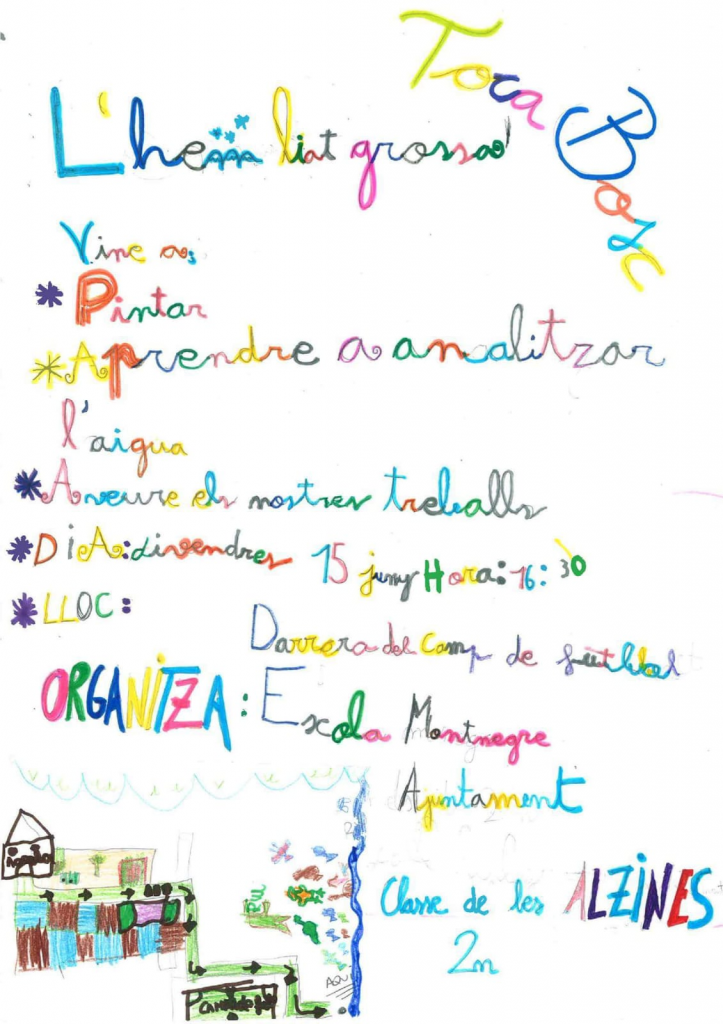 Toca Bosc
L'hem liat grossa!
Vine a:
* Pintar
* Aprendre a ansalitzar
l'aigua
* A veure els nostres treballs
* DIA: divendres 15 juny Hora: 16:30
* LLOC:
Darrera del Camp de futbol
ORGANITZA: Escola Montnegre
Ajuntament
Classe de les ALZINES
2n
AQUÍ